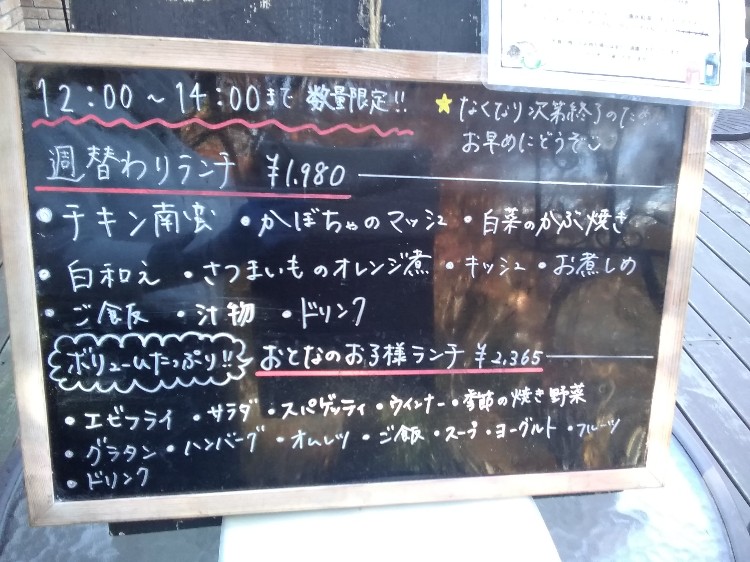 12:00～14:00まで 数量限定!!
★なくなり次第終了のため
お早めにどうぞ
週替わりランチ ¥1.980
・チキン南蛮 ・かぼちゃのマッシュ ・白菜のかぶ焼き
・白和え ・さつまいものオレンジ煮 ・キッシュ ・お煮しめ
・ご飯 ・汁物 ・ドリンク
ボリュームたっぷり!! おとなのお子様ランチ ¥2,365
・エビフライ ・サラダ ・スパゲッティ ・ウインナー ・季節の焼き野菜
・グラタン ・ハンバーグ ・オムレツ ・ご飯 ・スープ ・ヨーグルト ・フルーツ
・ドリンク